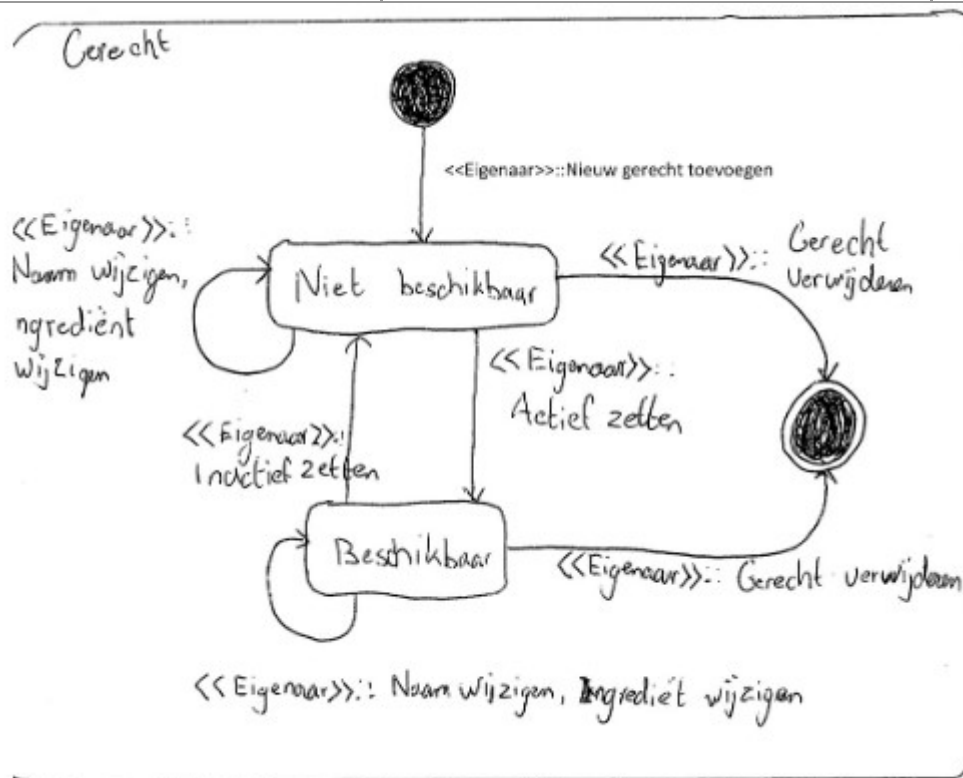 Gerecht
<<Eigenaar>>::Nieuw gerecht toevoegen
<<Eigenaar>>::
Naam wijzigen,
ngrediënt
wijzigen
Niet beschikbaar
<<Eigenaar>>:: Gerecht
verwijderen
<<Eigenaar>>::
Actief zetten
<<Eigenaar>>::
Inactief zetten
Beschikbaar
<<Eigenaar>>:: Gerecht verwijderen
<<Eigenaar>>:: Naam wijzigen, Ingrediét wijzigen